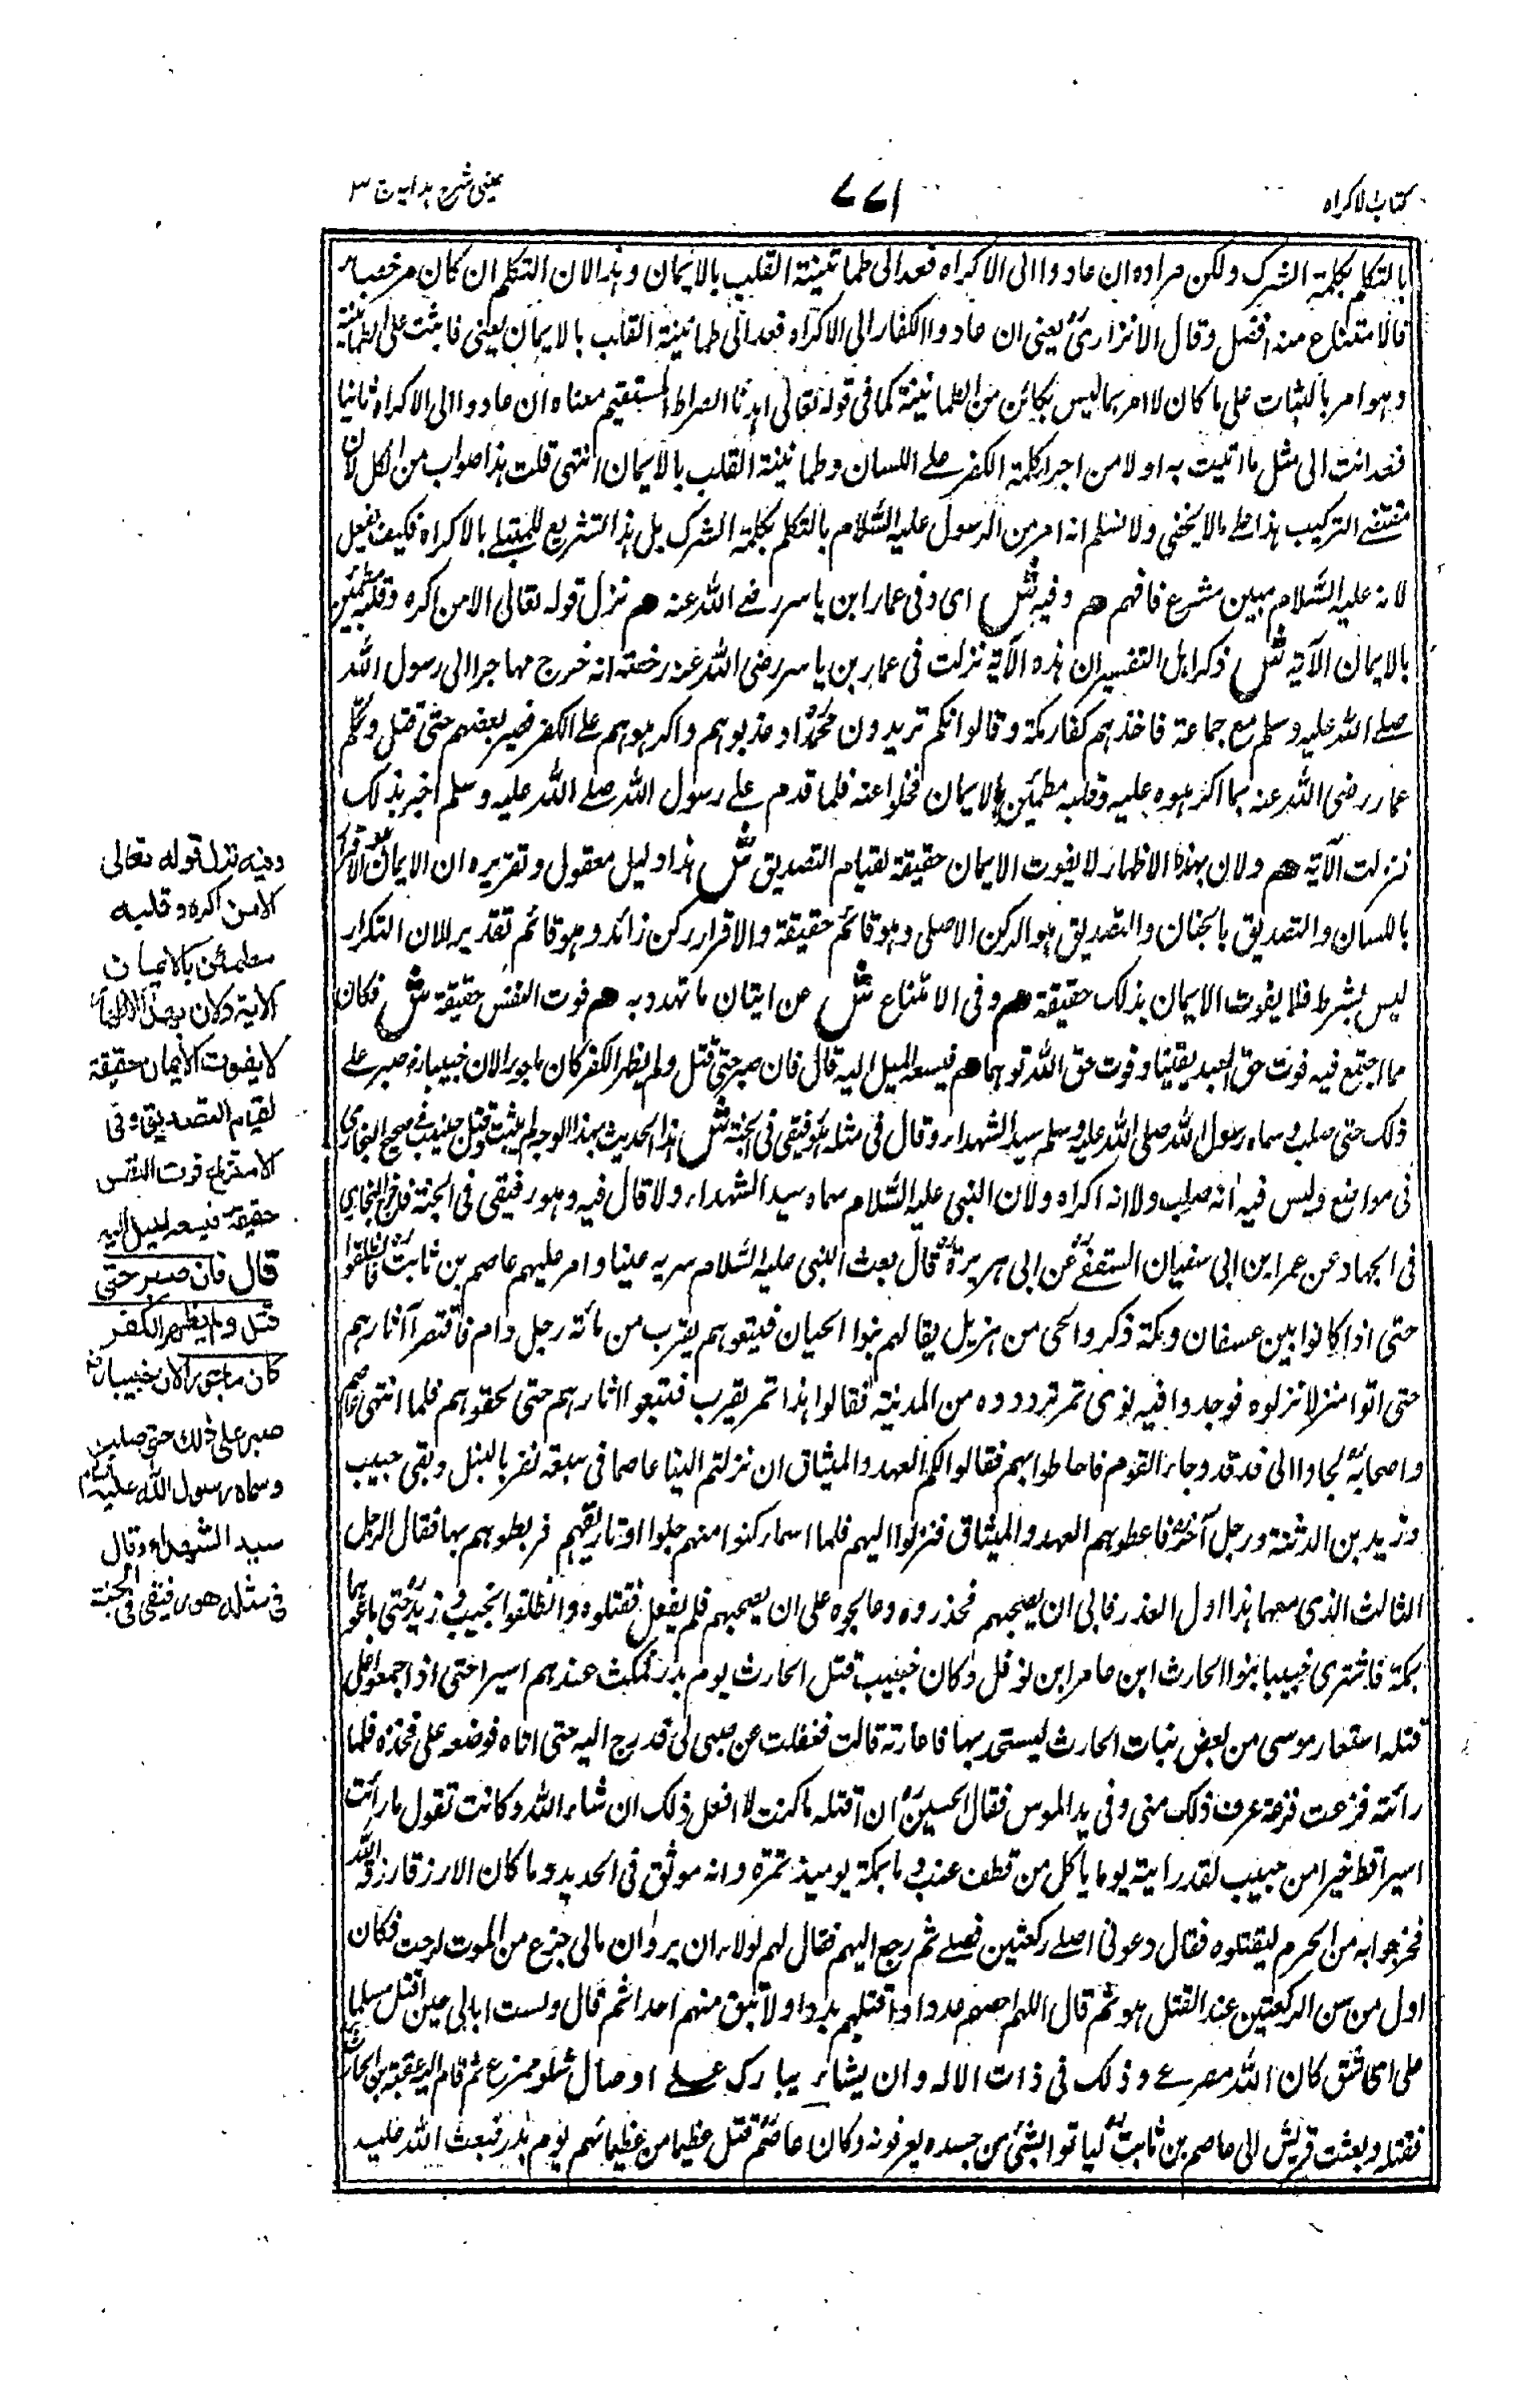 كتاب الاكراه
٧٧١
عينى شرح هدايه ج ٣
بالتكلم بكلمة الشرك ولكن مراده ان عادوا الى الاكراه فعد الى طمانينة القلب بالايمان وهذا لان التكلم ان كان مرخصا
فالامتناع منه افضل وقال الانزارى يعنى ان عادوا الكفار الى الاكراه فعد الى طمانينة القلب بالايمان يعنى فاثبت على الطمانينة
وهو امر بالثبات على ما كان لا امر بما ليس بكائن من الطمانينة كما فى قوله تعالى اهدنا الصراط المستقيم معناه ان عادوا الى الاكراه ثانيا
فعد انت الى مثل ما اتيت به اولا من اجراء كلمة الكفر على اللسان وطمانينة القلب بالايمان انتهى قلت هذا صواب من الكل لان
مقتضى التركيب هذا على ما لا يخفى ولا نسلم انه امر من الرسول عليه السلام بالتكلم بكلمة الشرك بل هذا التشريع للمبتلى بالاكراه فكيف يفعل
لانه عليه السلام مبين مشرع فافهم هم وفيه ش اى وفى عمار ابن ياسر رضى الله عنه هم نزل قوله تعالى الا من اكره وقلبه مطمئن
بالايمان الآية ش ذكر اهل التفسير ان هذه الآية نزلت فى عمار بن ياسر رضى الله عنه رخصة انه خرج مهاجرا الى رسول الله
صلى الله عليه وسلم مع جماعة فاخذهم كفار مكة وقالوا انكم تريدون محمدا وعذبوهم واكرهوهم على الكفر فصبر بعضهم حتى قتل وتكلم
عمار رضى الله عنه بما اكرهوه عليه وقلبه مطمئن بالايمان فخلوا عنه فلما قدم على رسول الله صلى الله عليه وسلم اخبر بذلك
فنزلت الآية هم ولان بهذا الاظهار لا يفوت الايمان حقيقة لقيام التصديق ش هذا دليل معقول وتقريره ان الايمان هو الاقرار
باللسان والتصديق بالجنان والتصديق هو الركن الاصلى وهو قائم حقيقة والاقرار ركن زائد وهو قائم تقديرا لان التكرار
ليس بشرط فلا يفوت الايمان بذلك حقيقة هم وفى الامتناع ش عن اتيان ما تهدد به هم فوت النفس حقيقة ش فكان
مما اجتمع فيه فوت حق العبد يقينا وفوت حق الله توهما هم فيسعه الميل اليه قال فان صبر حتى قتل ولم يظهر الكفر كان ماجورا لان خبيبا رض صبر على
ذلك حتى صلب وسماه رسول الله صلى الله عليه وسلم سيد الشهداء وقال فى مثله هو رفيقى فى الجنة ش هذا الحديث بهذا الوجه لم يثبت وقتل خبيب فى صحيح البخارى
فى مواضع وليس فيه انه صلب ولا انه اكراه ولان النبى عليه السلام سماه سيد الشهداء ولا قال فيه وهو رفيقى فى الجنة فاخرج البخارى
فى الجهاد عن عمر ابن ابى سفيان الثقفى عن ابى هريرة رض قال بعث النبى عليه السلام سرية عينا وامر عليهم عاصم بن ثابت رض فانطلقوا
حتى اذا كانوا بين عسفان ومكة ذكروا لحى من هزيل يقال لهم بنوا لحيان فتبعوهم بقرب من مائة رجل رام فاقتصوا آثارهم
حتى اتوا منزلا نزلوه فوجدوا فيه نوى تمر تزودوه من المدينة فقالوا هذا تمر يثرب فتبعوا اثارهم حتى لحقوهم فلما انتهى عاصم
واصحابه لجاوا الى فدفد وجاء القوم فاحاطوا بهم فقالوا لكم العهد والميثاق ان نزلتم الينا عاصما فى سبعة نفر بالنبل وبقى خبيب
وزيد بن الدثنة ورجل آخر فاعطوهم العهد والميثاق فنزلوا اليهم فلما استمكنوا منهم حلوا اوتار قسيهم فربطوهم بها فقال الرجل
الثالث الذى معهما هذا اول الغدر فابى ان يصحبهم فجرروه وعالجوه على ان يصحبهم فلم يفعل فقتلوه وانطلقوا بخبيب وزيد حتى باعوهما
بمكة فاشترى خبيبا بنوا الحارث ابن عامر ابن نوفل وكان خبيب قتل الحارث يوم بدر فمكث عندهم اسيرا حتى اذا اجمعوا على
قتله استعار موسى من بعض بنات الحارث ليستحد بها فاعارته قالت فغفلت عن صبى لى فدرج اليه حتى اتاه فوضعه على فخذه فلما
رائته فزعت فزعة عرف ذلك منى وفى يده الموسى فقال اتخشين ان اقتله ما كنت لافعل ذلك ان شاء الله وكانت تقول ما رائت
اسيرا قط خيرا من خبيب لقد رايته يوما ياكل من قطف عنب وما بمكة يوميذ ثمرة وانه موثق فى الحديد وما كان الا رزقا رزقه الله
فخرجوا به من الحرم ليقتلوه فقال دعونى اصلى ركعتين فصلى ثم رجع اليهم فقال لهم لولا ان يروا ان مالى جزع من الموت لزدت فكان
اول من سن الركعتين عند القتل هو ثم قال اللهم احصهم عددا واقتلهم بددا ولا تبق منهم احدا ثم قال ولست ابالى حين اقتل مسلما
على اى شق كان الله مصرعى وذلك فى ذات الاله وان يشاء يبارك على اوصال شلو ممزع ثم قام اليه عقبة بن الحارث
فقتله وبعثت قريش الى عاصم بن ثابت لياتوا بشئ من جسده يعرفونه وكان عاصم قتل عظيما من عظمائهم يوم بدر فبعث الله عليه
وفيه نزل قوله تعالى
الا من اكره وقلبه
مطمئن بالايمان
الآية ولان بهذا الاظهار
لا يفوت الايمان حقيقة
لقيام التصديق وفى
الامتناع فوت النفس
حقيقة فيسعه الميل اليه
قال فان صبر حتى
قتل ولم يظهر الكفر
كان ماجورا لان خبيبا رض
صبر على ذلك حتى صلب
وسماه رسول الله عليه السلام
سيد الشهداء وقال
فى مثله هو رفيقى فى الجنة